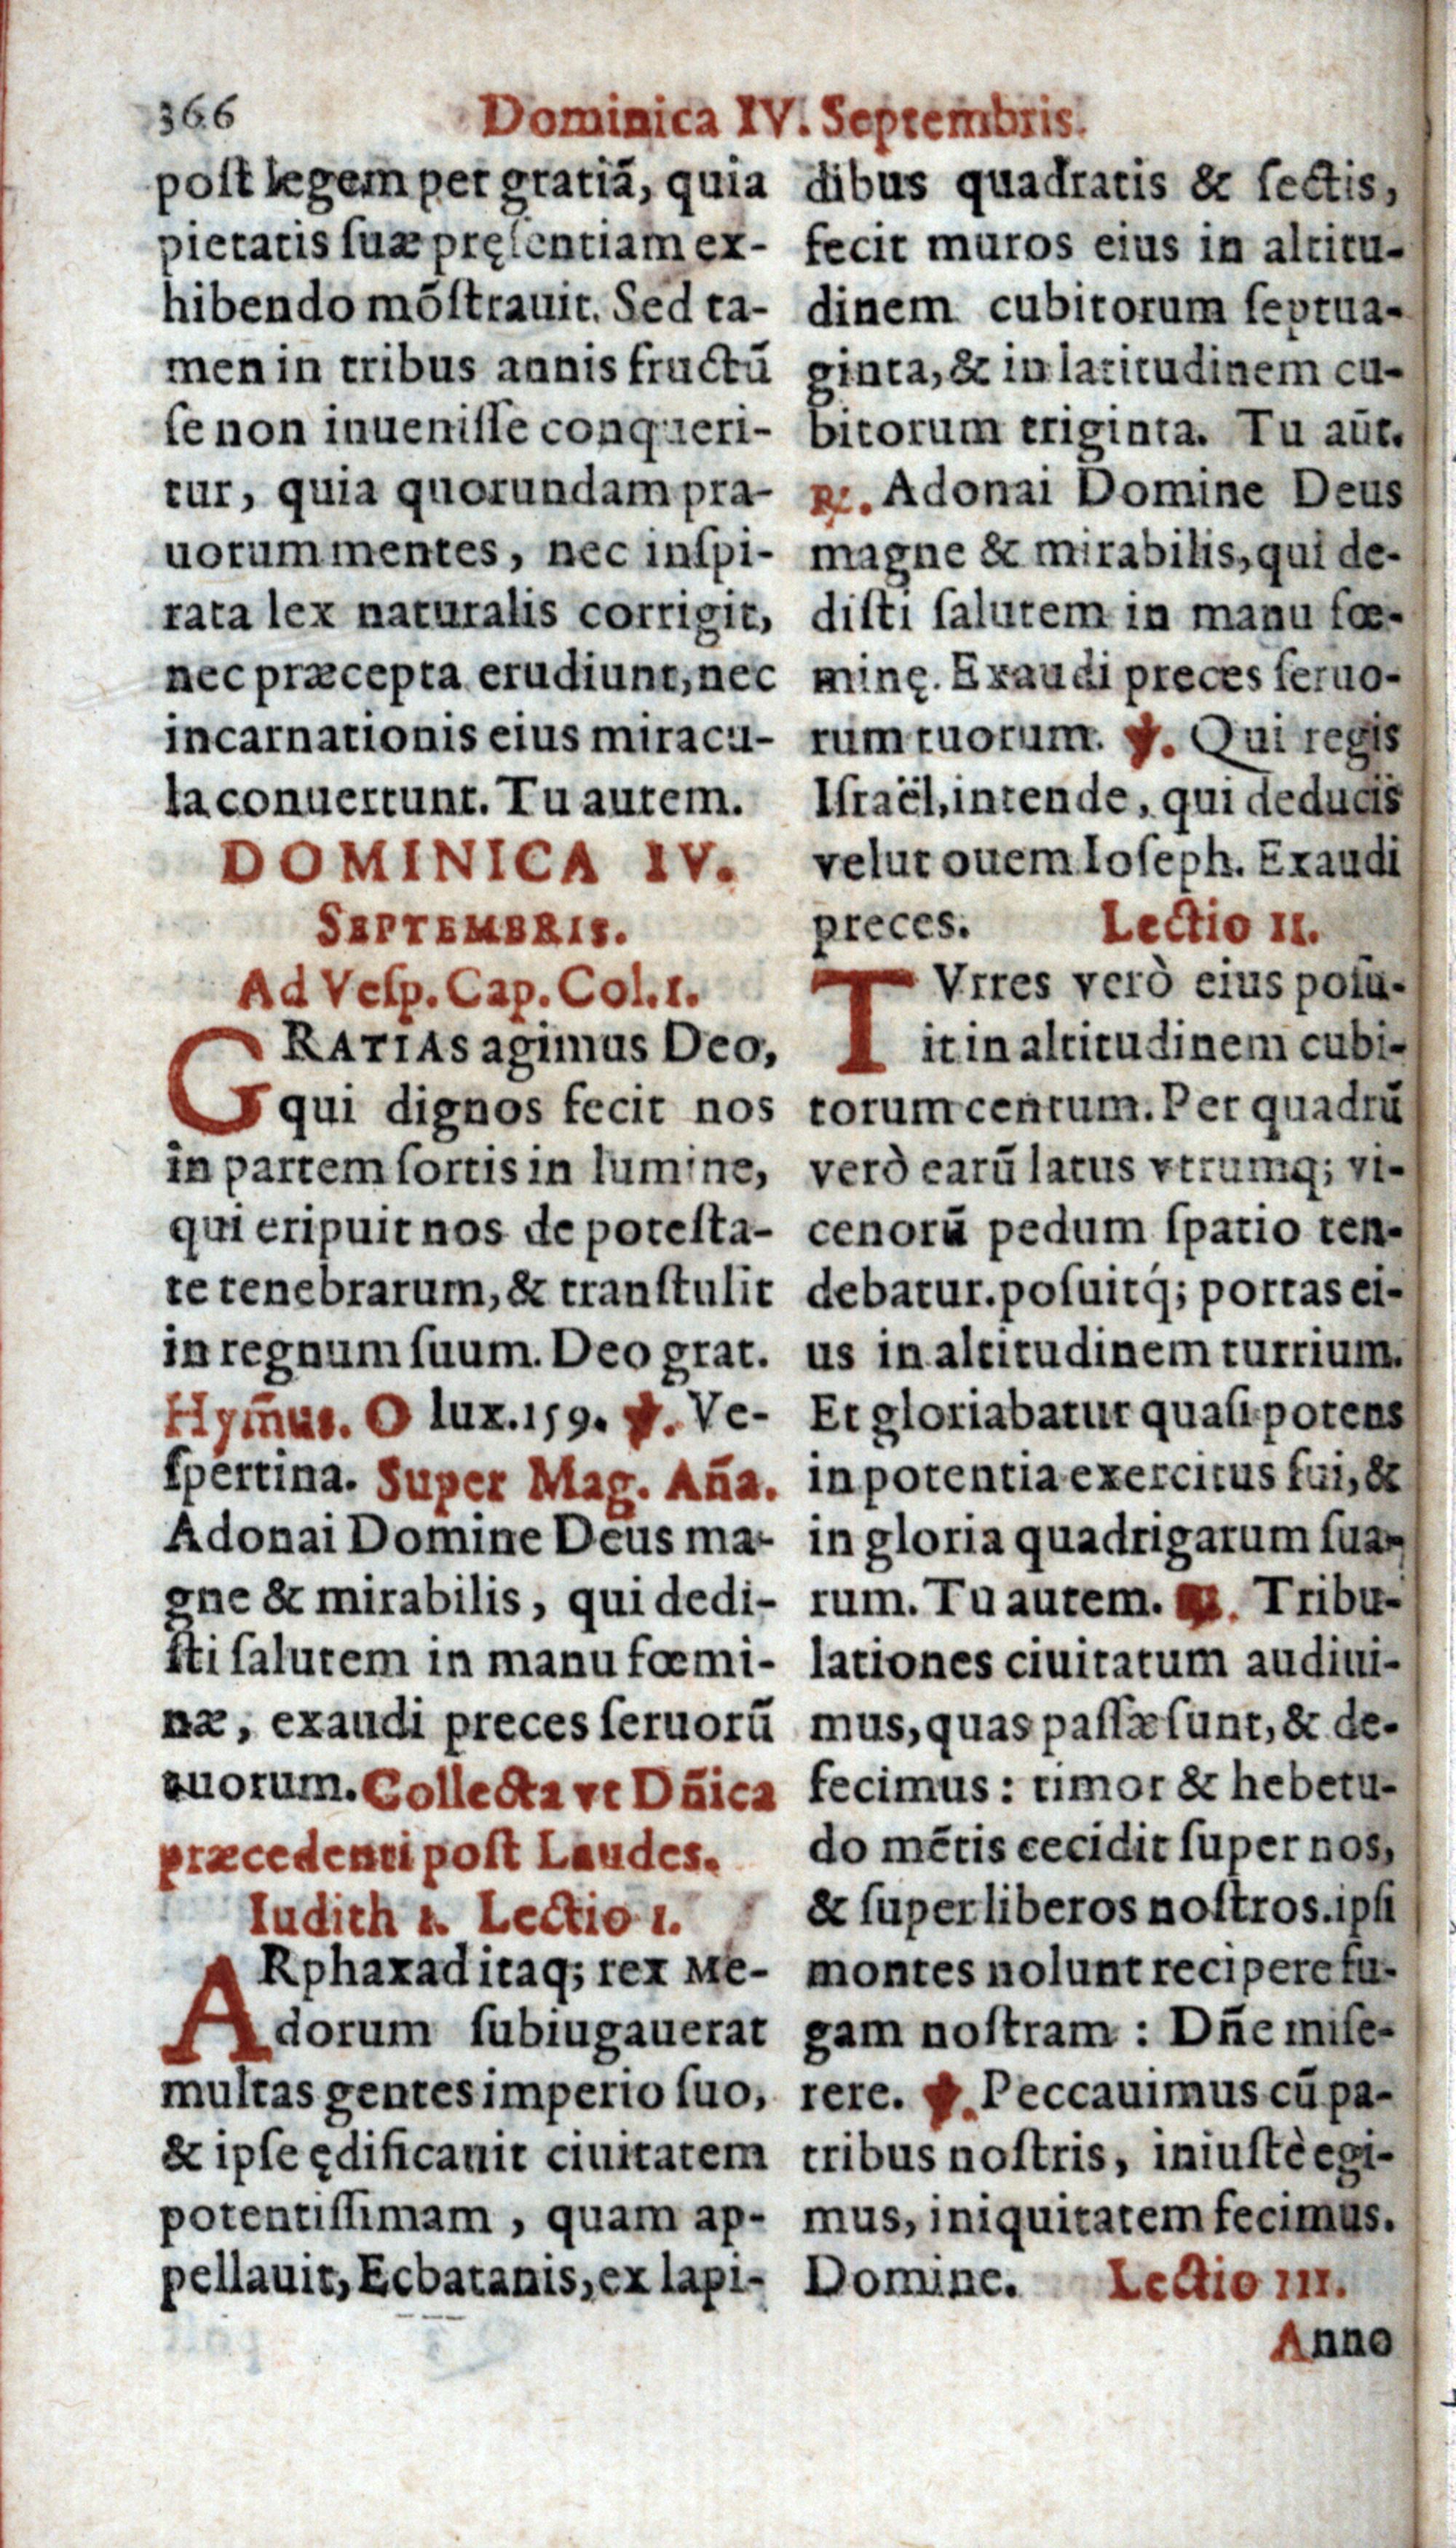 366
Dominica IV. Septembris.
poſt legem per gratiã, quia
pietatis ſuæ pręſentiam ex-
hibendo mõſtrauit. Sed ta-
men in tribus annis fructũ
ſe non inueniſſe conqueri-
tur, quia quorundam pra-
uorum mentes, nec inſpi-
rata lex naturalis corrigit,
nec præcepta erudiunt, nec
incarnationis eius miracu-
la conuertunt. Tu autem.
DOMINICA IV.
SEPTEMBRIS.
Ad Veſp. Cap. Col. 1.
GRATIAS agimus Deo,
qui dignos fecit nos
in partem ſortis in lumine,
qui eripuit nos de poteſta-
te tenebrarum, & tranſtulit
in regnum ſuum. Deo grat.
Hym̃us. O lux. 159. ℣. Ve-
ſpertina. Super Mag. Aña.
Adonai Domine Deus ma-
gne & mirabilis, qui dedi-
ſti ſalutem in manu fœmi-
næ, exaudi preces ſeruorũ
tuorum. Collecta vt Dñica
præcedenti poſt Laudes.
Iudith 1. Lectio 1.
ARphaxad itaq; rex Me-
dorum ſubiugauerat
multas gentes imperio ſuo,
& ipſe ędificauit ciuitatem
potentiſſimam, quam ap-
pellauit, Ecbatanis, ex lapi-
dibus quadratis & ſectis,
fecit muros eius in altitu-
dinem cubitorum ſeptua-
ginta, & in latitudinem cu-
bitorum triginta. Tu aũt.
℟. Adonai Domine Deus
magne & mirabilis, qui de-
diſti ſalutem in manu fœ-
minę. Exaudi preces ſeruo-
rum tuorum. ℣. Qui regis
Iſraël, intende, qui deducis
velut ouem Ioſeph. Exaudi
preces. Lectio II.
TVrres verò eius poſu-
it in altitudinem cubi-
torum centum. Per quadrũ
verò earũ latus vtrumq; vi-
cenorũ pedum ſpatio ten-
debatur. poſuitq́; portas ei-
us in altitudinem turrium.
Et gloriabatur quaſi potens
in potentia exercitus ſui, &
in gloria quadrigarum ſua-
rum. Tu autem. ℟. Tribu-
lationes ciuitatum audiui-
mus, quas paſſæ ſunt, & de-
fecimus: timor & hebetu-
do mẽtis cecidit ſuper nos,
& ſuper liberos noſtros. ipſi
montes nolunt recipere fu-
gam noſtram: Dñe miſe-
rere. ℣. Peccauimus cũ pa-
tribus noſtris, iniuſtè egi-
mus, iniquitatem fecimus.
Domine. Lectio III.
Anno